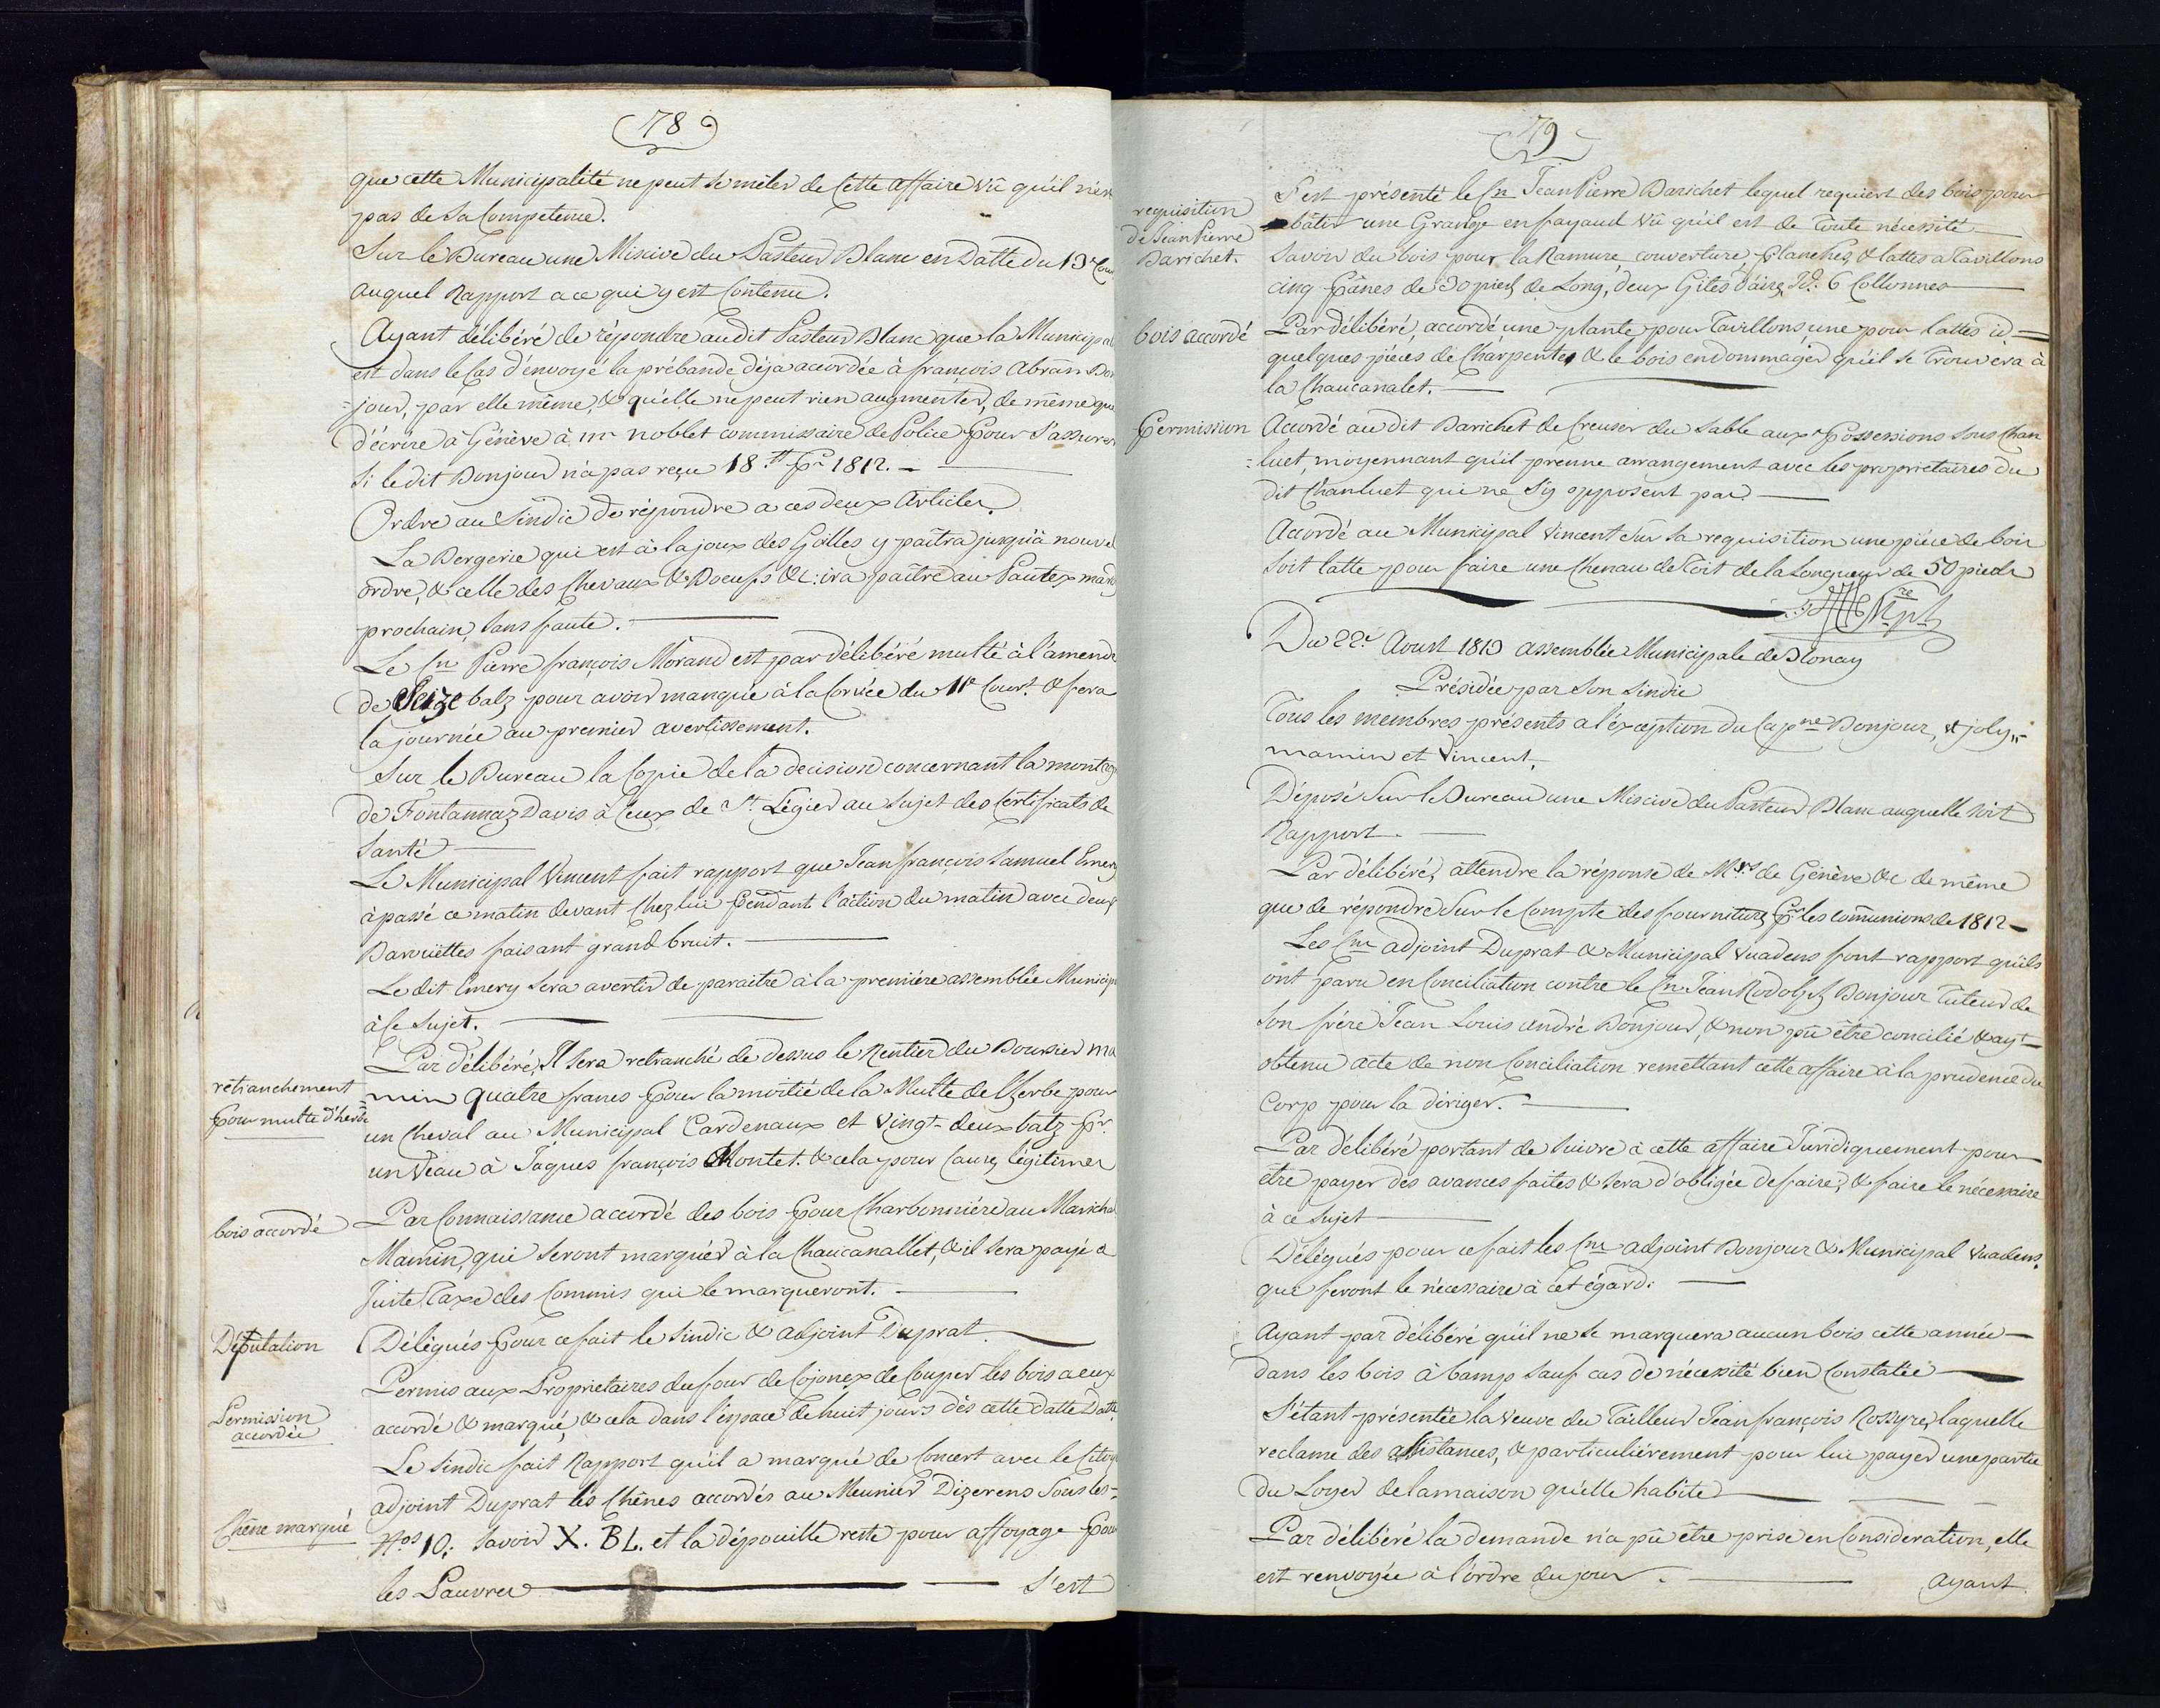 78
que cette Municipalité ne peut se mêler de Cette affaire vû qu'il n'est
pas de Sa Competence.
Sur le Bureau une Miscive du Pasteur Blanc en Datte du 13e Cou
auquel Rapport a ce qui y est Contenu.
Ayant délibéré de répondre audit Pasteur Blanc que la Municipal
est dans le Cas d'envoyé la prébande déja accordée à françois Abram Bon
=jour, par elle même, & qu'elle ne peut rien augmenter, de même que
d'écrire à Génève à mr noblet commissaire de Police Pour S'assurer
Si le dit Bonjour n'a pas reçu 18 ft Pr 1812. —
Ordre au Sindic de répondre a ces deux Articles.
La Bergerie qui est à la joux des Golles y paîtra jusqu'à nouvel
ordre, & celle des Chevaux & Boeufs &c: ira paître au Pautex mardy
prochain, Sans faute. —
Le Cn Pierre françois Morand est par délibéré multé à l'amende
de Seize batz pour avoir manquée à la Corvée du 11e Court. & fera
la journée au premier avertissement.
Sur le Bureau la Copie de la decision concernant la montagne
de Fontannaz Davis à Ceux de St. Légier au Sujet des Certificats de
Santé —
Le Municipal Vincent fait rapport que Jean françois Samuel Emery
à passé ce matin devant Chez lui Pendant l'action du matin avec deux
Barouettes faisant grand bruit. —
Le dit Emery Sera avertir de paraitre à la première assemblée Municip
à Ce Sujet. —
retranchement
Pour multe d'herbe
Par délibéré, Il Sera retranché de dessus le Rentier du Boursier Ma
=min quatre francs Pour la moitié de la Multe de l'herbe pour
un Cheval au Municipal Cardenaux et Vingt-deux batz Pr.
un Veau à Jaques françois Montet. & cela pour Causes légitimes
bois accordé
Par Connaissance accordé des bois Pour Charbonnière au Marichal
Mamin, qui Seront marqués à la Chaucanallet, & il Sera payé à
Juste Taxe des Commis qui le marqueront. —
Députation
Délégués Pour ce fait le Sindic & adjoint Duprat. —
Permission
accordée
Permis aux Proprietaires du four de Cojonex de Couper les bois a eux
accordé & marqué, & cela dans l'espace de huit jours dès cette datte Datte
Le Sindic fait Rapport qu'il a marqué de Concert avec le Citoyn
Chêne marqué
adjoint Duprat les Chênes accordés au Meunier Dizerens Sous les=
Nos 10: Savoir X. BL. et la dépouille reste pour affoyage Pour
les Pauvres — S'est
79
requisition
de Jean Pierre
Barichet.
S'est présenté le Cn Jean Pierre Barichet lequel requiert des bois pour
bâtir une Grange en fayaud Vû qu'il est de toute nécessité —
Savoir du bois pour la Ramure, couverture, Planches, & lattes a Tavillons
cinq Pânes de 30 pieds de Long, deux Gites d'aires, Id: 6 Collonnes —
bois accordé
Par délibéré, accordé une plante pour Tavillons, une pour lattes id =
quelques pièces de Charpentes & le bois endommager qu'il se trouvera à
la Chaucanalet. —
Permission
Accordé au dit Barichet de Creuser du Sable aux Possessions Sous Chan
=luet, moyennant qu'il prenne arrangement avec les proprietaires du
dit Chanluet qui ne S'y opposent pas. —
Accordé au Municipal Vincent Sur Sa requisition une pièce de bois
Soit latte pour faire une Chenau de Toit de la Longueur de 50 pieds
Du 22e. Aoust 1813 assemblée Municipale de Blonay
Présidée par Son Sindic
Tous les membres présents a l'éxception du Capne Bonjour, & joly,
mamin et Vincent.
Déposé Sur le Bureau une Miscive du Pasteur Blanc auquelle Soit
Rapport. —
Par délibéré, attendre la réponse de Mrs. de Génève &c de même
que de répondre Sur le Compte des fournitures Pr les communions de 1812 —
Les Cns adjoint Duprat & Municipal Vuadens font rapport qu'ils
ont paru en Conciliation contre le Cn Jean Rodolph Bonjour Tuteur de
Son frère Jean Louis andré Bonjour, & non pû être concilié & ayt
obtenu acte de non Conciliation remettant cette affaire à la prudence du
Corp pour la diriger. —
Par délibéré portant de Suivre à cette affaire Juridiquement pour
etre payer des avances faites & Sera d'obligée de faire, & faire le nécessaire
à ce Sujet —
Délégués pour ce fait les Cns adjoint Bonjour & Municipal Vuadens,
que feront le nécessaire à cet égard. —
Ayant par délibéré qu'il ne Se marquera aucun bois cette année —
dans les bois à bamp Sauf cas de nécessité bien Constatée —
S'étant présentée la Veuve du Tailleur Jean françois Rossyre, laquelle
reclame des assistances, & particulièrement pour lui payer une partie
du Loyer de la maison qu'elle habite —
Par délibéré la demande n'a pû être prise en Consideration, elle
est renvoyée à l'ordre du jour. — ayant